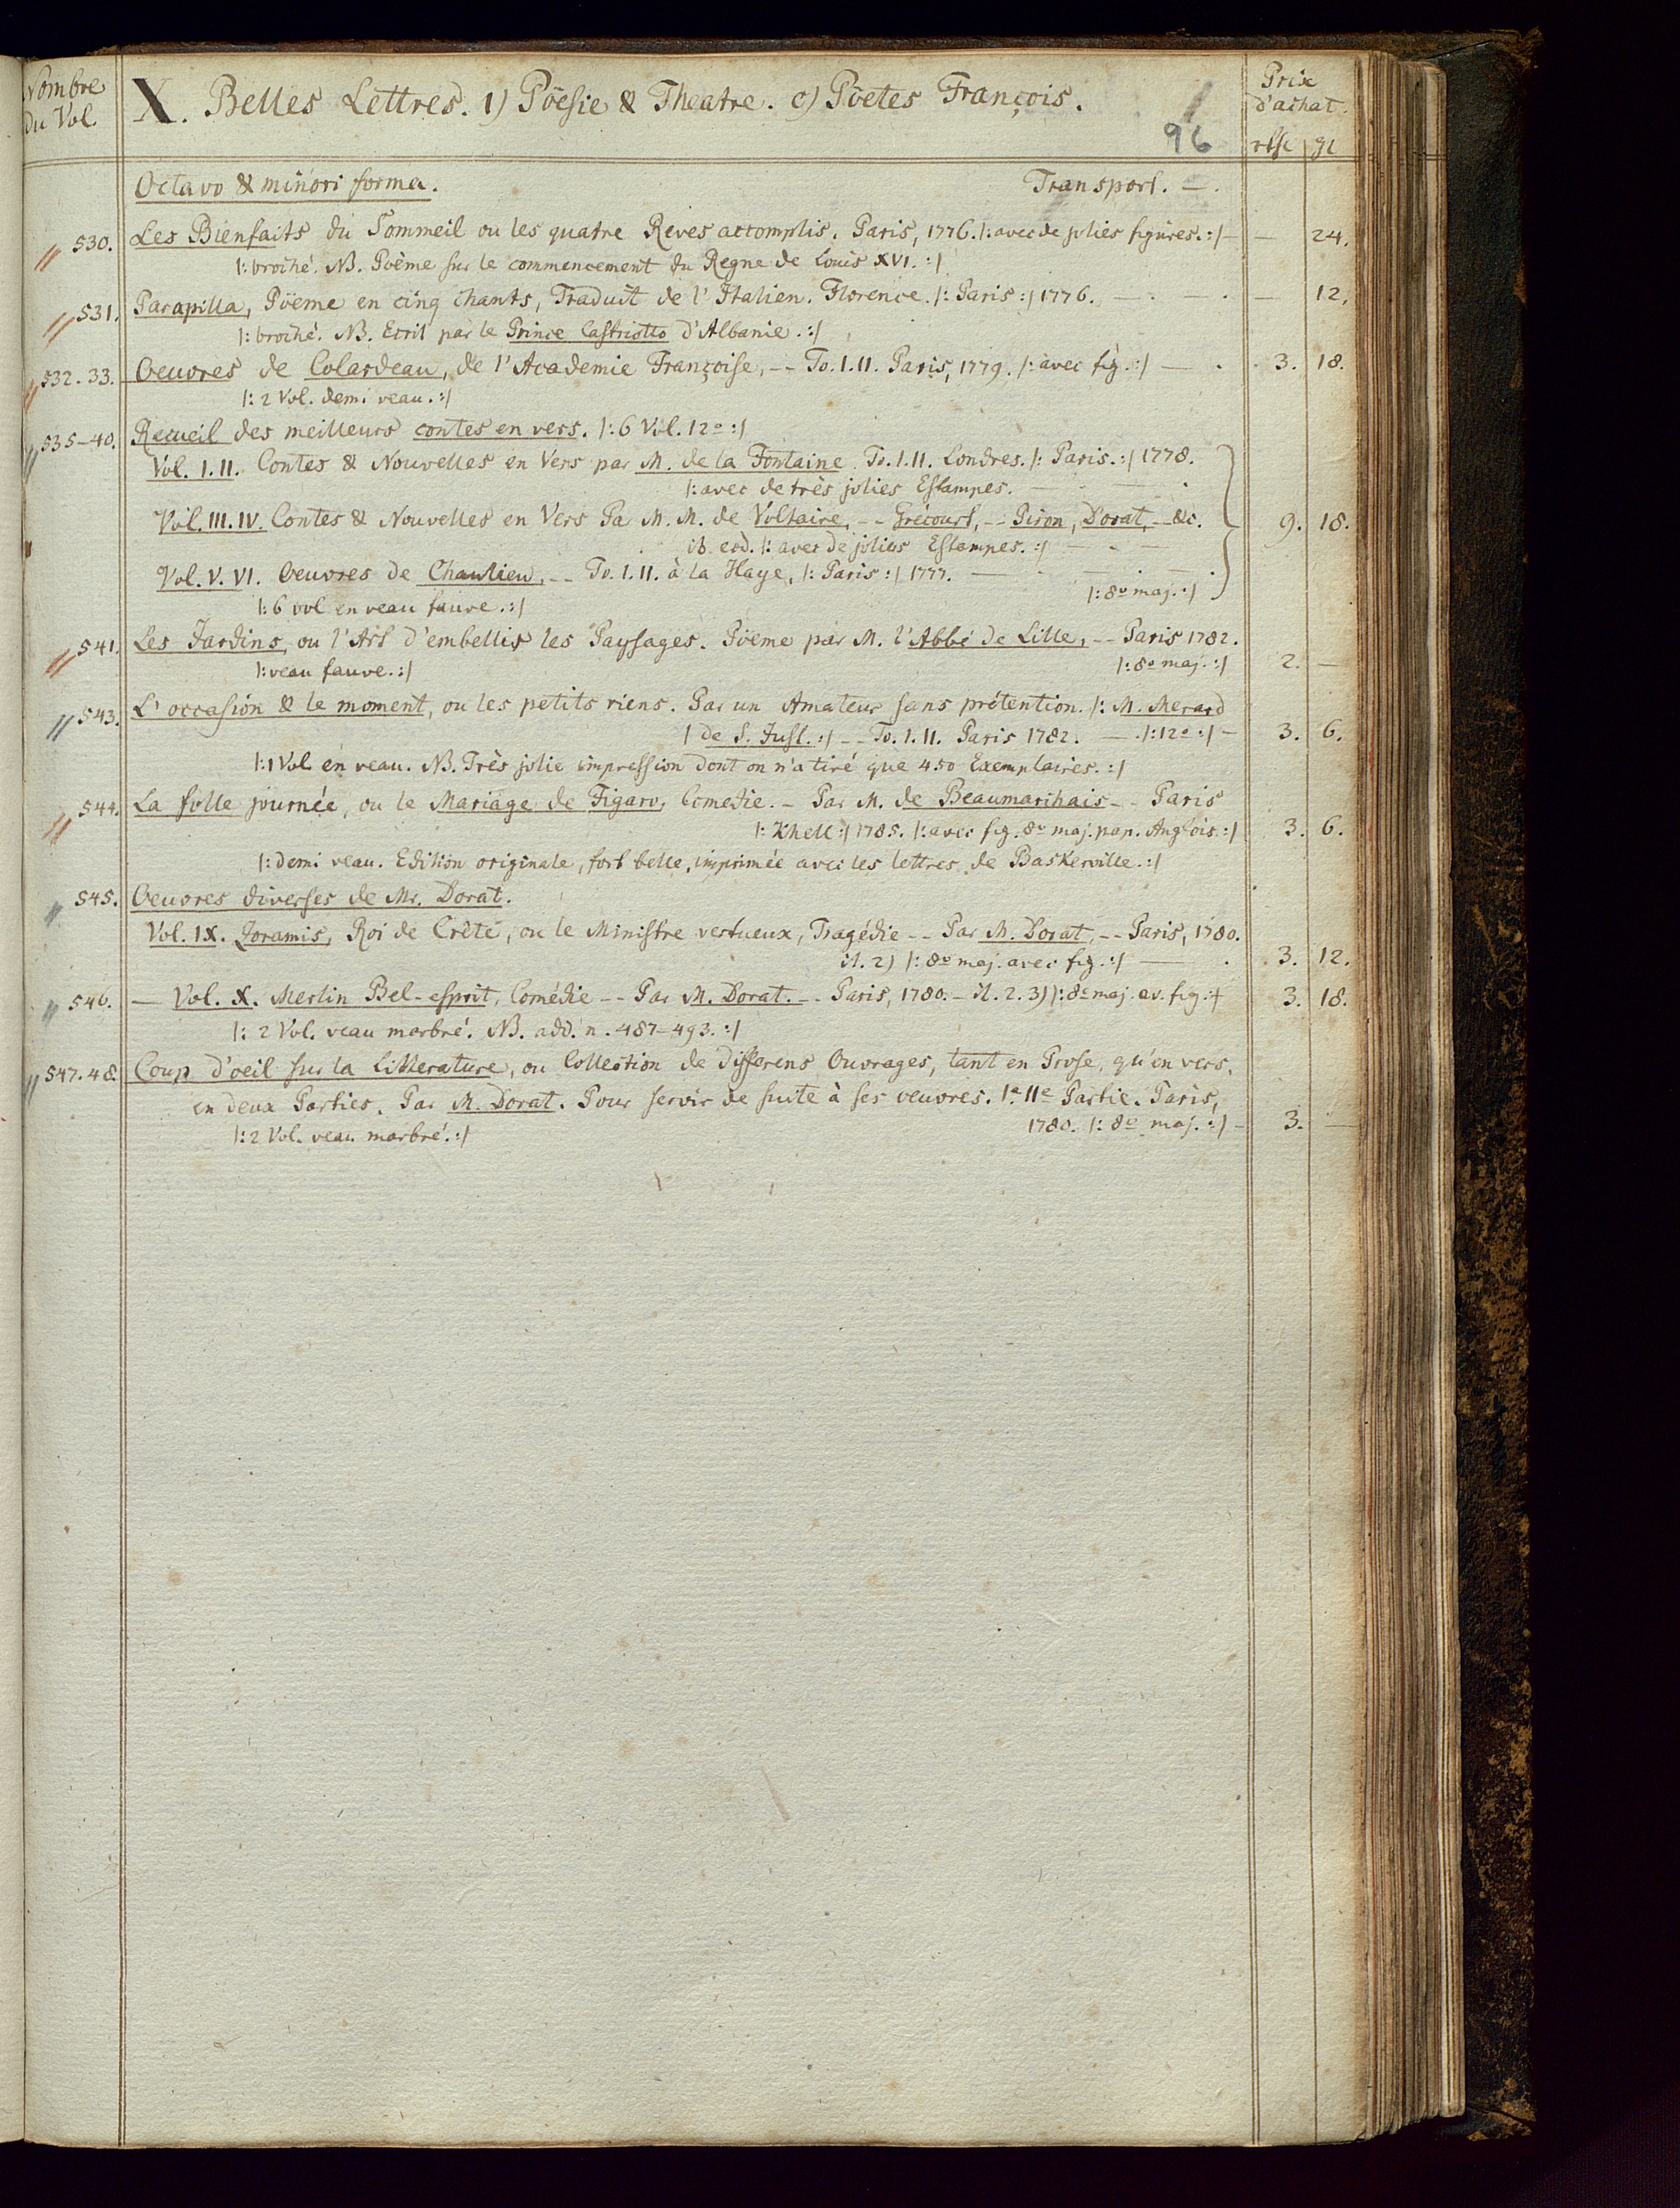 Nombre du Vol.
X. Belles Lettres. 1) Pöesie & Theatre. c) Pöetes François.
96
Prix d'achat.
rthl gl
Octavo & minori forma. Transport. —.
530. Les Bienfaits du Sommeil ou les quatre Reves accomplis. Paris, 1776. |: avec de jolies figures. :| — — 24.
|: broché. NB. Poëme sur le commencement du Regne de Louis XVI. :|
531. Parapilla, Pöeme en cinq chants, Traduit de l'Italien. Florence. |: Paris :| 1776. — . — . — 12.
|: broché. NB. Ecrit par le Prince Castriotto d'Albanie. :|
532. 33. Oeuvres de Colardeau, de l'Academie Françoise, -- To. I. II. Paris, 1779. |: avec fig. :| — . 3. 18.
|: 2 Vol. demi veau. :|
535-40. Recueil des meilleurs contes en vers. |: 6 Vol. 12º :|
Vol. I. II. Contes & Nouvelles en Vers par M. de la Fontaine To. I. II. Londres. |: Paris. :| 1778.
|: avec de très jolies Estampes. — . — .
Vol. III. IV. Contes & Nouvelles en Vers Pa M. M. de Voltaire, -- Grécourt, -- Piron, Dorat, -- &c. 9. 18.
ib. eod. |: avec de jolies Estampes. :| — . —
Vol. V. VI. Oeuvres de Chaulieu, -- To. I. II. à la Haye, |: Paris :| 1777. — . — . — .
|: 8º maj. :|
|: 6 vol en veau fauve. :|
541. Les Jardins, ou l'Art d'embellir les Paysages. Pöeme par M. l'Abbé de Lille, -- Paris 1782.
|: veau fauve. :| |: 8º maj. :| 2. —
543. L'occasion & le moment, ou les petits riens. Par un Amateur sans prétention. |: M. Merard
| de S. Just. :| -- To. I. II. Paris 1782. — . |: 12º :| — 3. 6.
|: 1 Vol en veau. NB. Très jolie impression dont on n'a tiré que 450 Exemplaires. :|
544. La folle journée, ou le Mariage de Figaro, Comedie. - Par M. de Beaumarchais - - Paris
|: Khell :| 1785. |: avec fig. 8º maj. pap. Anglois :| 3. 6.
|: demi veau. Edition originale, fort belle, imprimée avec les lettres de Baskerville. :|
545. Oeuvres diverses de Mr. Dorat.
Vol. IX. Zoramis, Roi de Crête, ou le Ministre vertueux, Tragédie -- Par M. Dorat, -- Paris, 1780.
il. 2) |: 8º maj. avec fig. :| — . 3. 12.
546. — Vol. X. Merlin Bel-esprit, Comédie -- Par M. Dorat. -- Paris, 1780. - il. 2. 3) |: 8º maj. av. fig. :| 3. 18.
|: 2 Vol. veau marbré. NB. add. n. 487-493. :|
547. 48. Coup d'oeil sur la Litterature, ou Collection de differens Ouvrages, tant en Prose, qu'en vers,
en deux Parties. Par M. Dorat. Pour servir de suite à ses oeuvres. Ie. IIe Partie. Paris,
1780. |: 8º maj. :| — 3. —
|: 2 Vol. veau marbré. :|